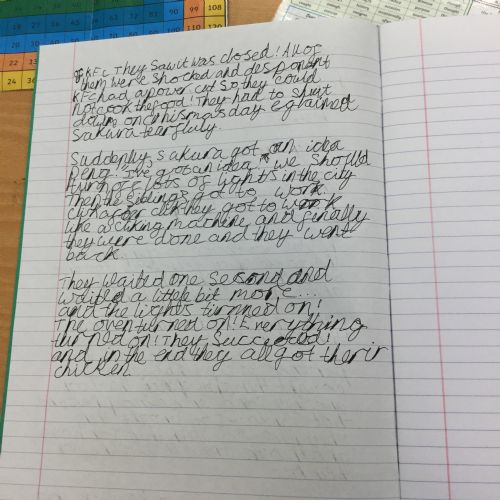 KFC They Saw it was closed! All of
them were shocked and despondent
KFC had a power cut so they could
not cook the food! They had to shut
down on chrismas day
Sakura tearfuly.
Suddenly, sakura got an idea
I've got an idea we should
turn off lots of lights in the city
Then the siblings got to work.
Click after click they got to work
like a clicking machine and finally
they were done and they went
back.
They waited one second and
waited a little bit more...
and the lights turnned on!
The oven turned on! Everything
turned on! They Succeeded!
and in the end they all got their
chicken.